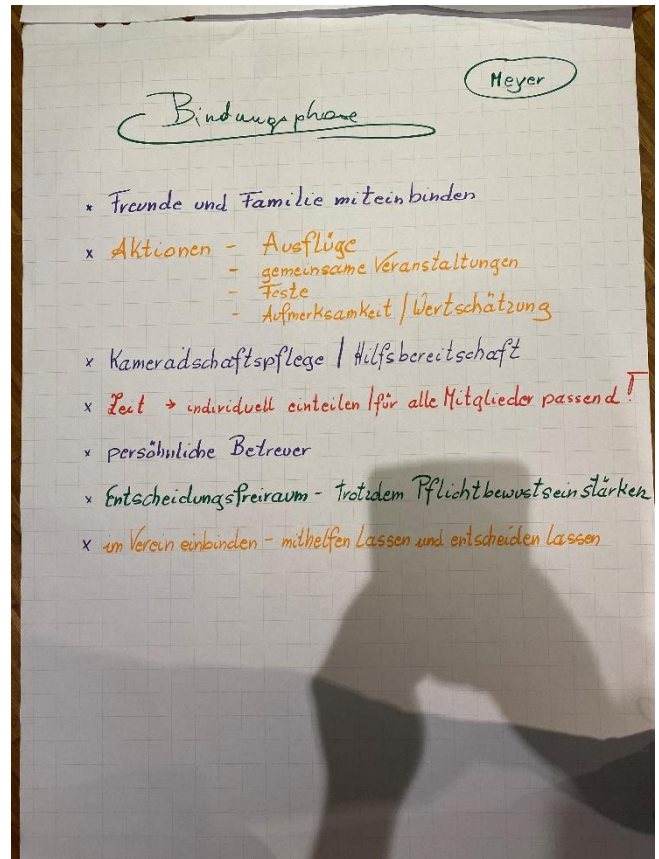 Meyer
Bindungsphase
x Freunde und Familie miteinbinden
x Aktionen - Ausflüge
- gemeinsame Veranstaltungen
- Feste
- Aufmerksamkeit / Wertschätzung
x Kameradschaftspflege / Hilfsbereitschaft
x Zeit → individuell einteilen / für alle Mitglieder passend!
x persöhnliche Betreuer
x Entscheidungsfreiraum - trotzdem Pflichtbewustsein stärken
x im Verein einbinden - mithelfen lassen und entscheiden lassen